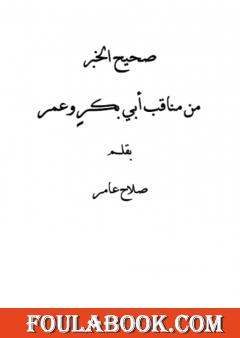 صحيح الخبر
من مناقب أبي بكرٍ وعمر
بقلم
صلاح عامر
FOULABOOK.COM